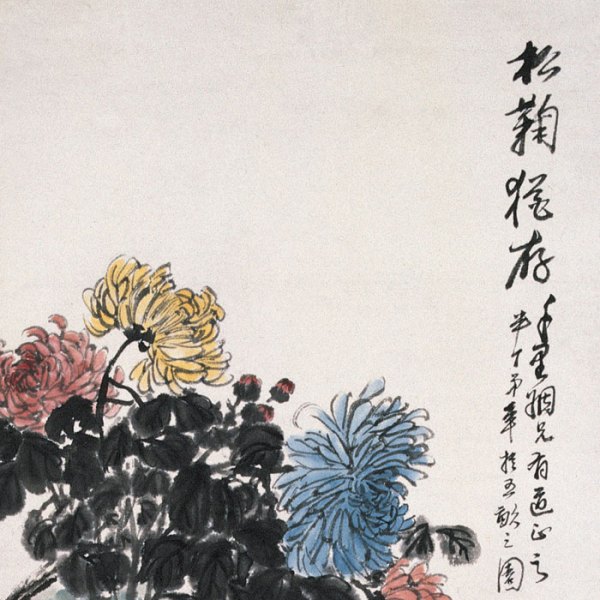 松鞠猶存 千里姻兄有道正之
半丁弟年於五畝之園